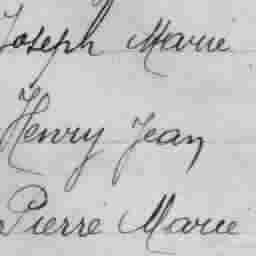 Joseph Marie
Henry Jean
Pierre Marie